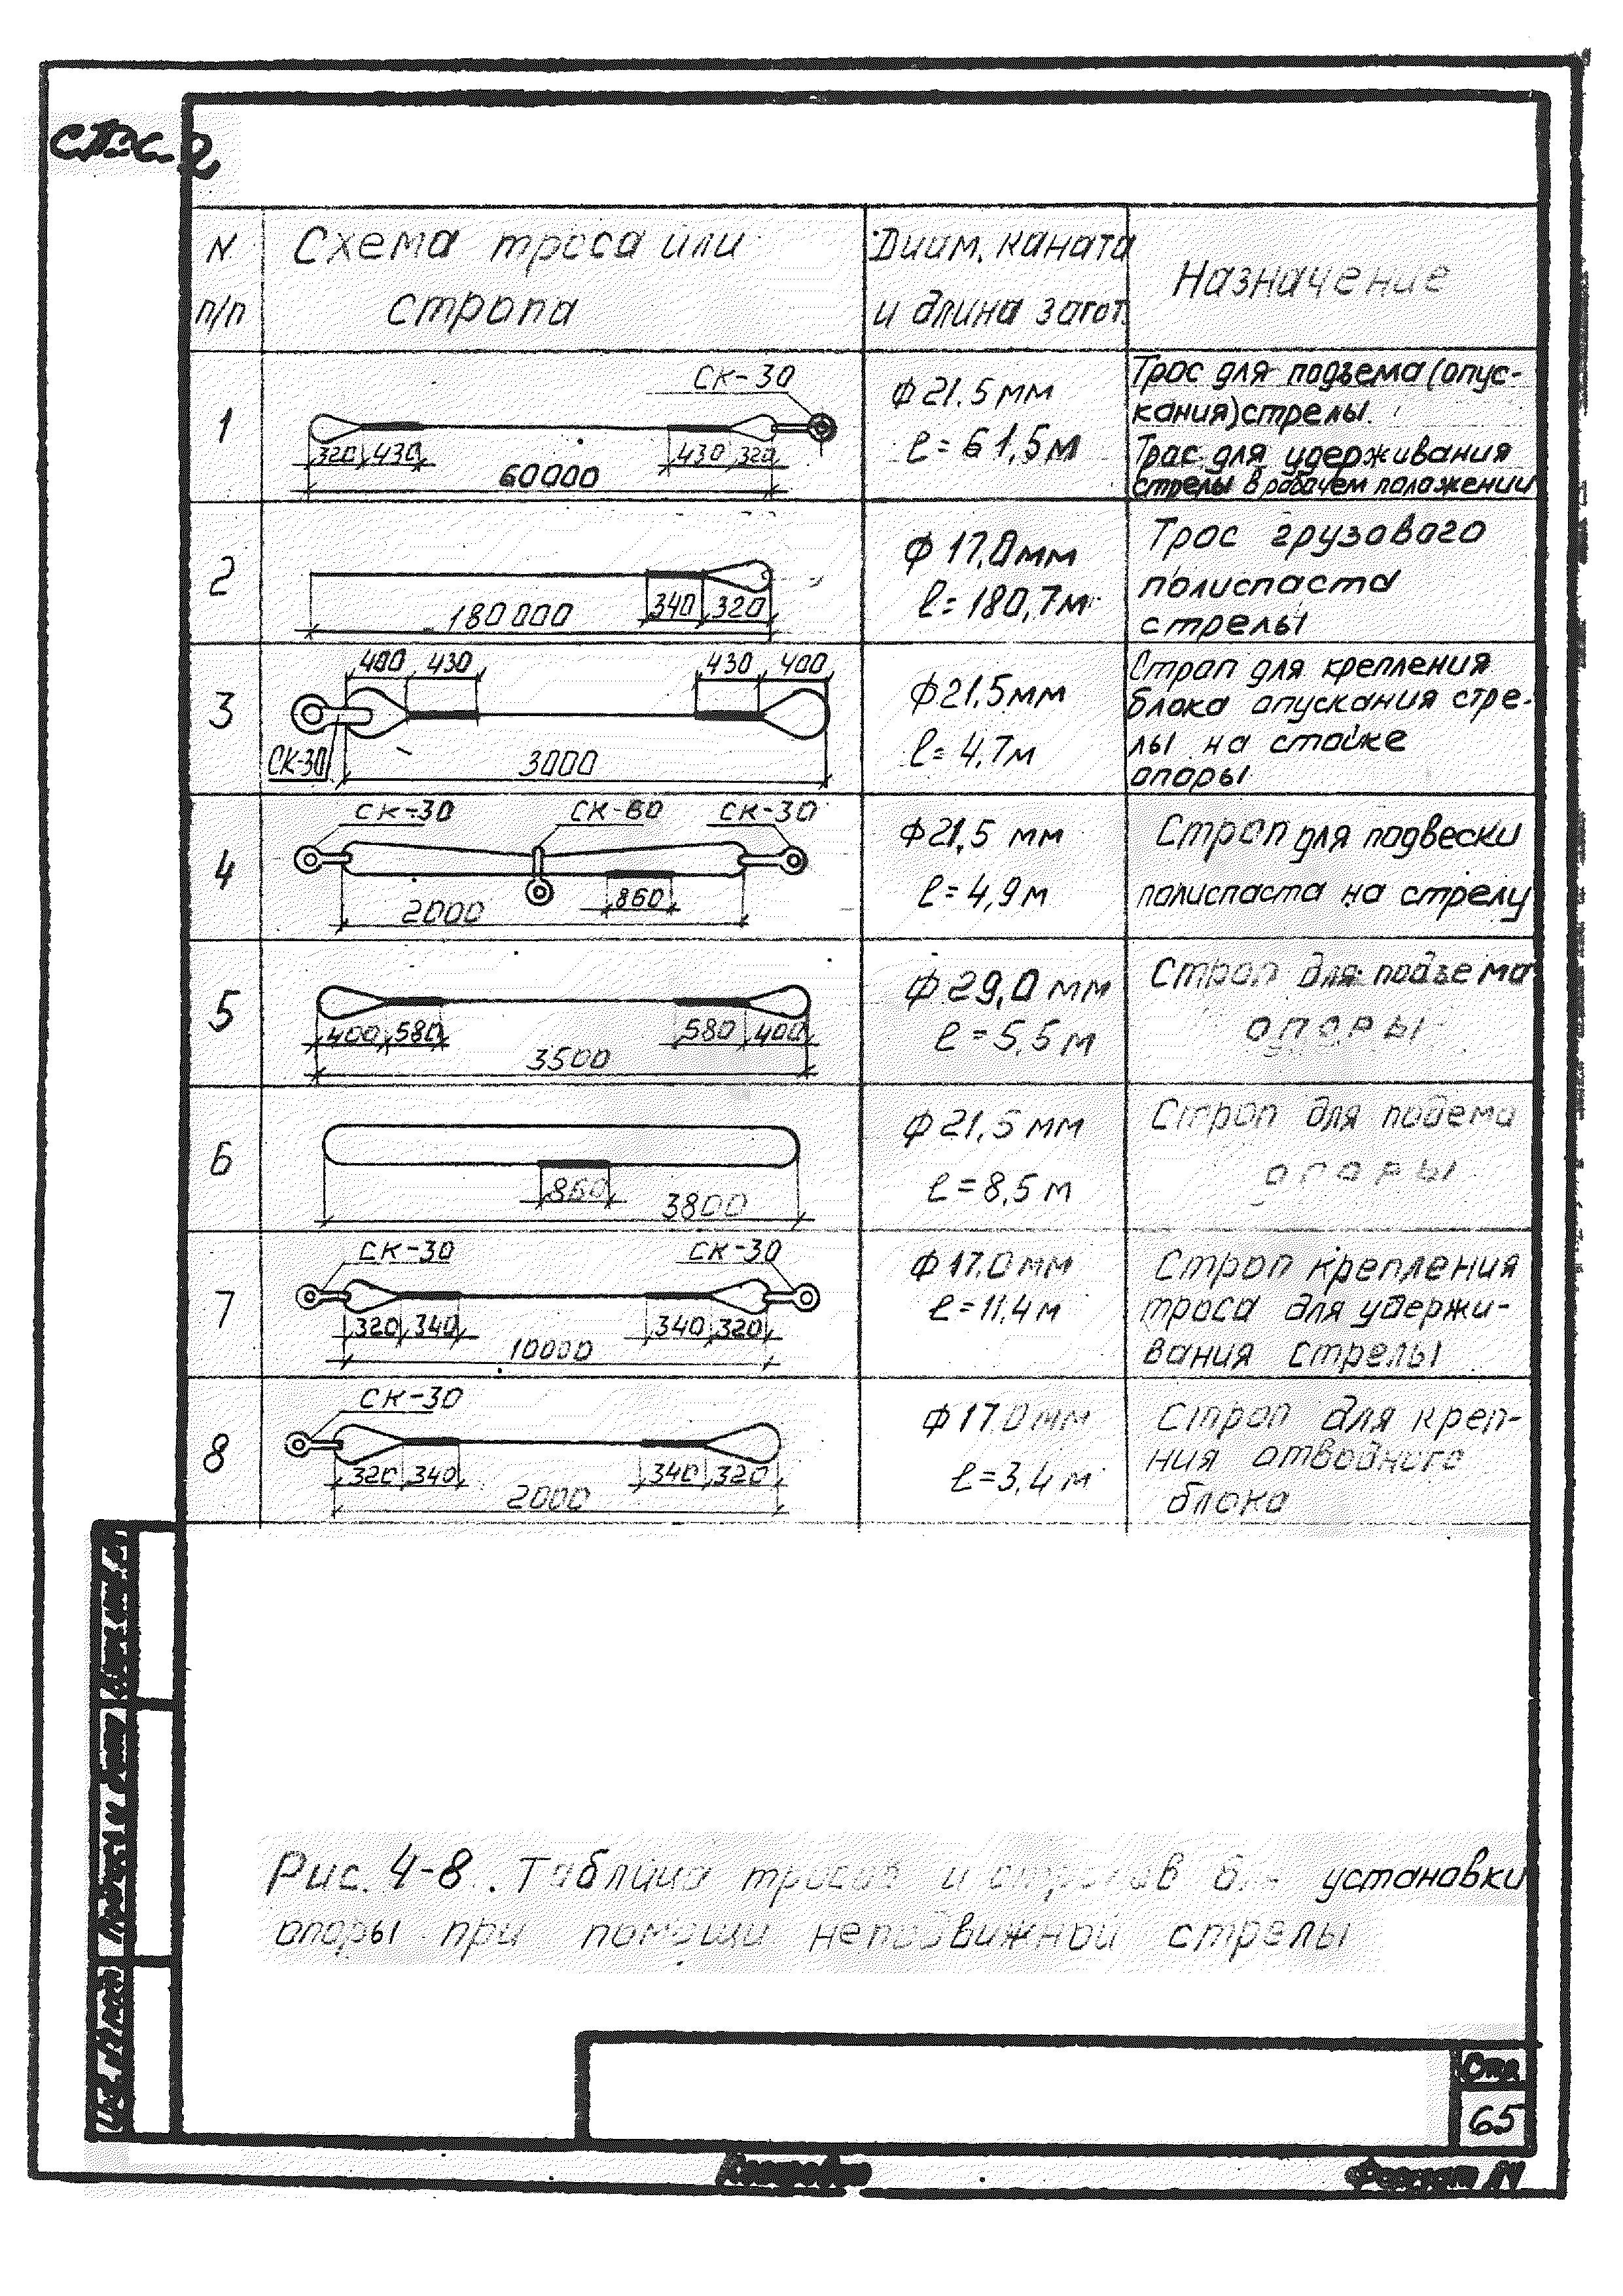 N п/п
Схема троса или
стропа
Диам. каната
и длина загот.
Назначение
1
СК-30
320 430 430 320
60000
Ф 21.5 мм
ℓ = 61,5м
Трос для подъема (опус-
кания) стрелы.
Трос для удерживания
стрелы в рабочем положении
2
340 320
180 000
Ф 17,0мм
ℓ = 180,7м
Трос грузового
полиспаста
стрелы
3
400 430 430 400
СК-30
3000
Ф21,5мм
ℓ = 4,7м
Строп для крепления
блока опускания стре-
лы на стойке
опоры
4
СК-30 СК-60 СК-30
860
2000
Ф21,5 мм
ℓ = 4,9 м
Строп для подвески
полиспаста на стрелу
5
400 580 580 400
3500
Ф 29,0 мм
ℓ = 5,5 м
Строп для подъема
опоры
6
860
3800
Ф 21,5 мм
ℓ = 8,5 м
Строп для подема
опоры
7
СК-30 СК-30
320 340 340 320
10000
Ф 17.0 мм
ℓ = 11,4 м
Строп крепления
троса для удержи-
вания стрелы
8
СК-30
320 340 340 320
2000
Ф 17.0 мм
ℓ = 3,4 м
Строп для креп-
ния отводного
блока
Рис. 4-8. Таблица тросов и стропов для установки
опоры при помощи неподвижной стрелы
Стр.
65
Копировал
Формат А4